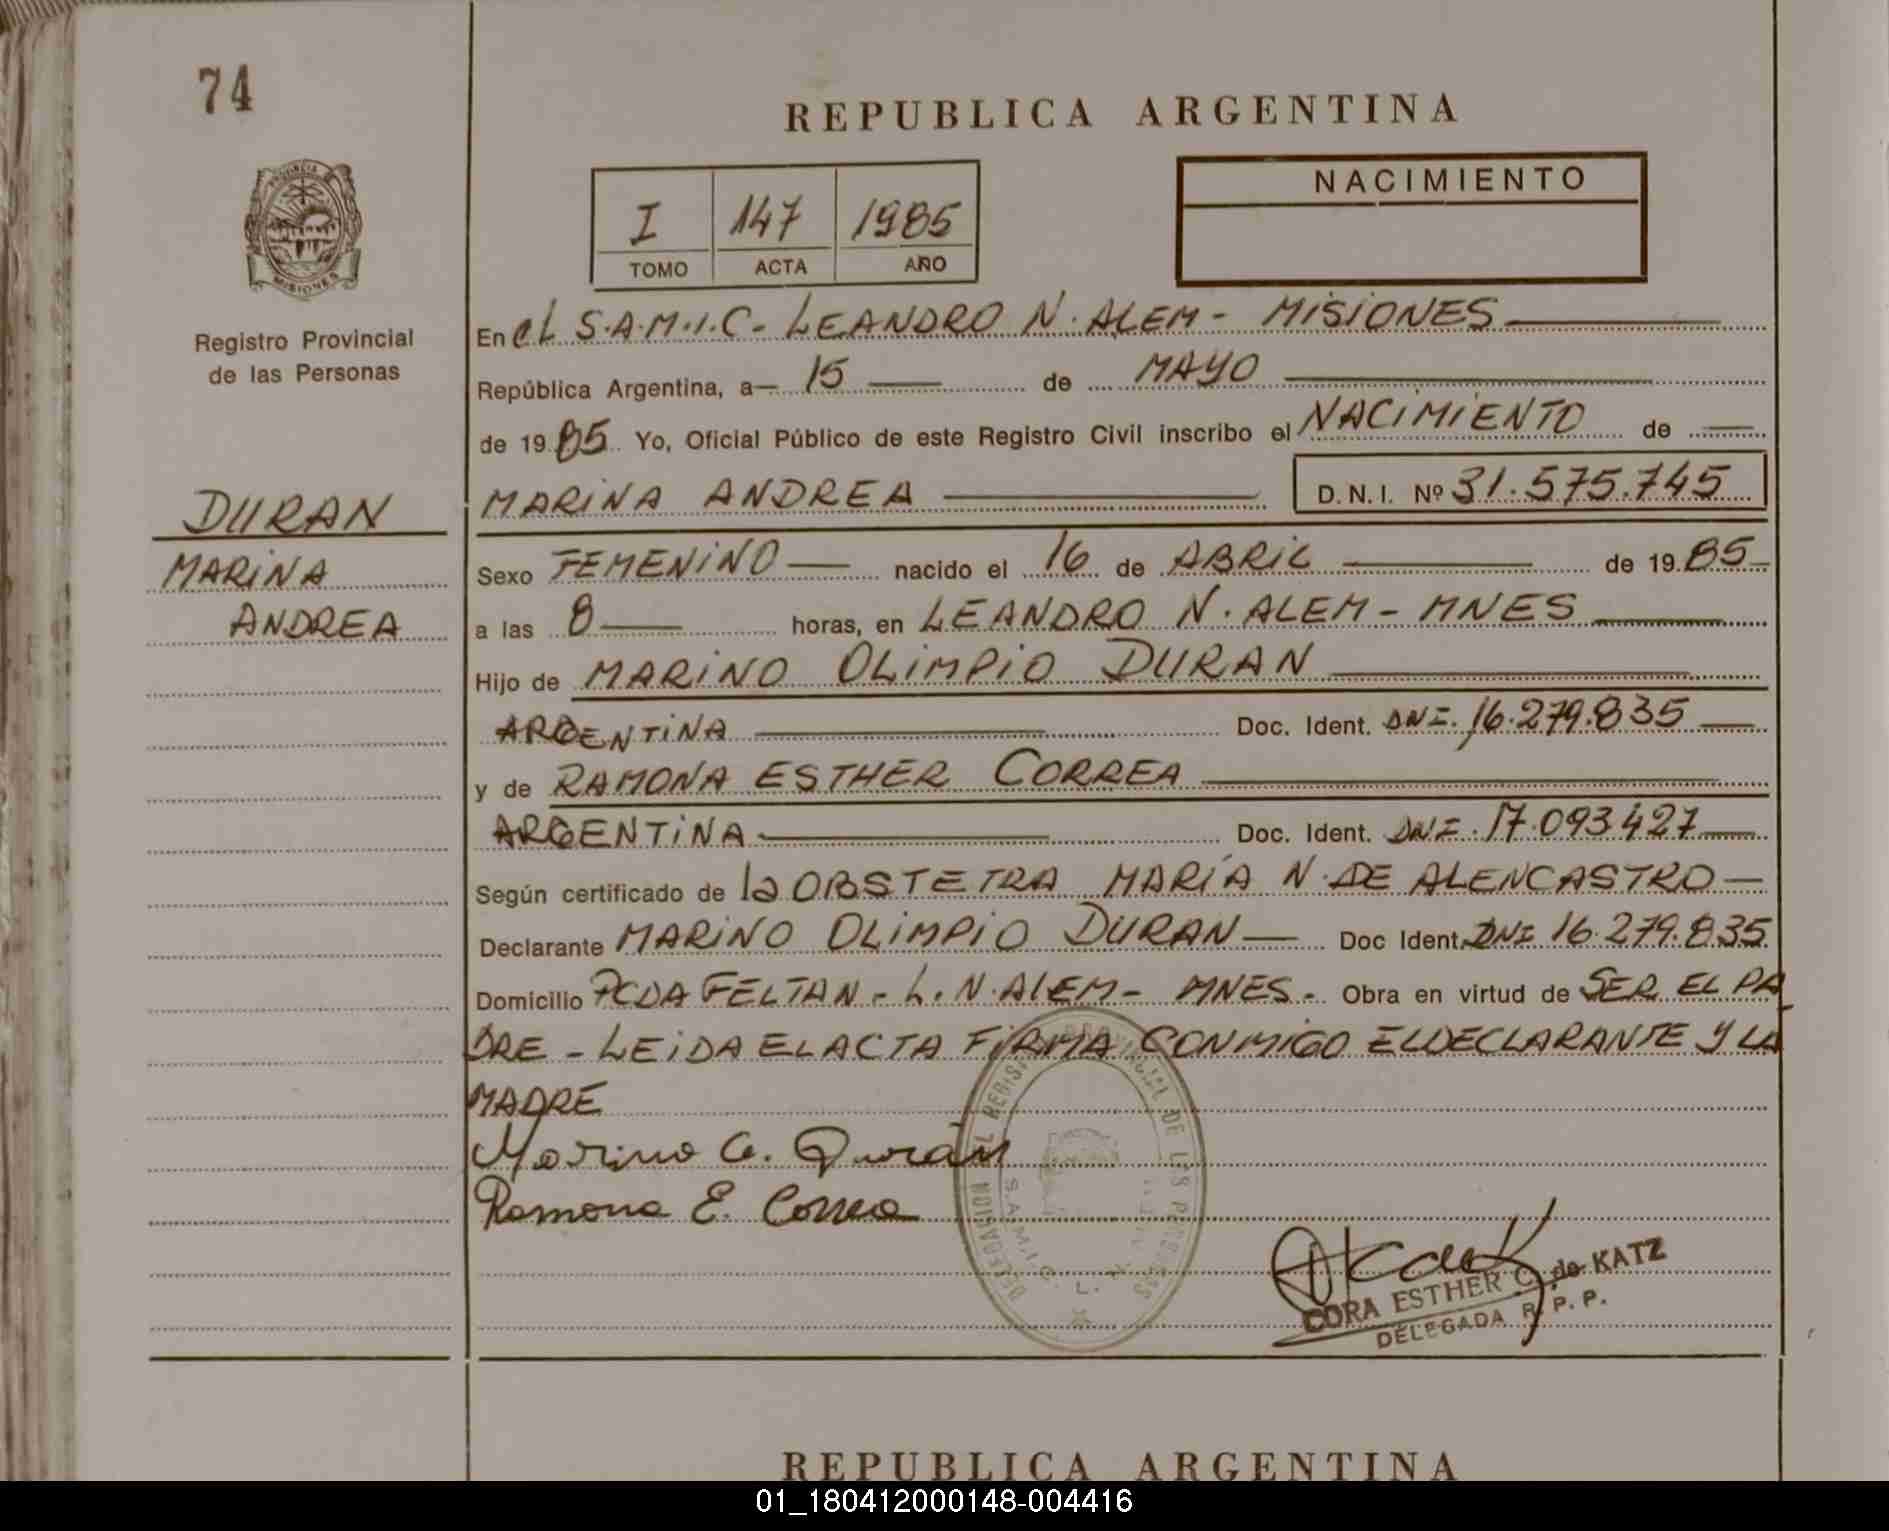 74
REPUBLICA ARGENTINA
NACIMIENTO
I 147 1985
TOMO ACTA AÑO
MISIONES
Registro Provincial
de las Personas
DURAN
MARINA
ANDREA
En el S.A.M.I.C- LEANDRO N. ALEM - MISIONES
República Argentina, a 15 de MAYO
de 1985 Yo, Oficial Público de este Registro Civil inscribo el NACIMIENTO de
MARINA ANDREA D.N.I. Nº 31.575.745
Sexo FEMENINO nacido el 16 de ABRIL de 1985
a las 8 horas, en LEANDRO N. ALEM - MNES
Hijo de MARINO OLIMPIO DURAN
ARGENTINA Doc. Ident. DNI. 16.279.835
y de RAMONA ESTHER CORREA
ARGENTINA Doc. Ident. DNI. 17.093427
Según certificado de la OBSTETRA MARÍA N. DE ALENCASTRO
Declarante MARINO OLIMPIO DURAN Doc Ident. DNI 16.279.835
Domicilio PCDA FELTAN - L.N.ALEM - MNES. Obra en virtud de SER EL PA
DRE - LEIDA EL ACTA FIRMA CONMIGO EL DECLARANTE Y LA
MADRE
Marino O. Durán
Ramona E. Correa
DELEGACION EL REGIS PROVINCIAL DE LAS PERSONAS
S.A.M.I.C. L.
CORA ESTHER C. de KATZ
DELEGADA R. P. P.
REPUBLICA ARGENTINA
01_180412000148-004416